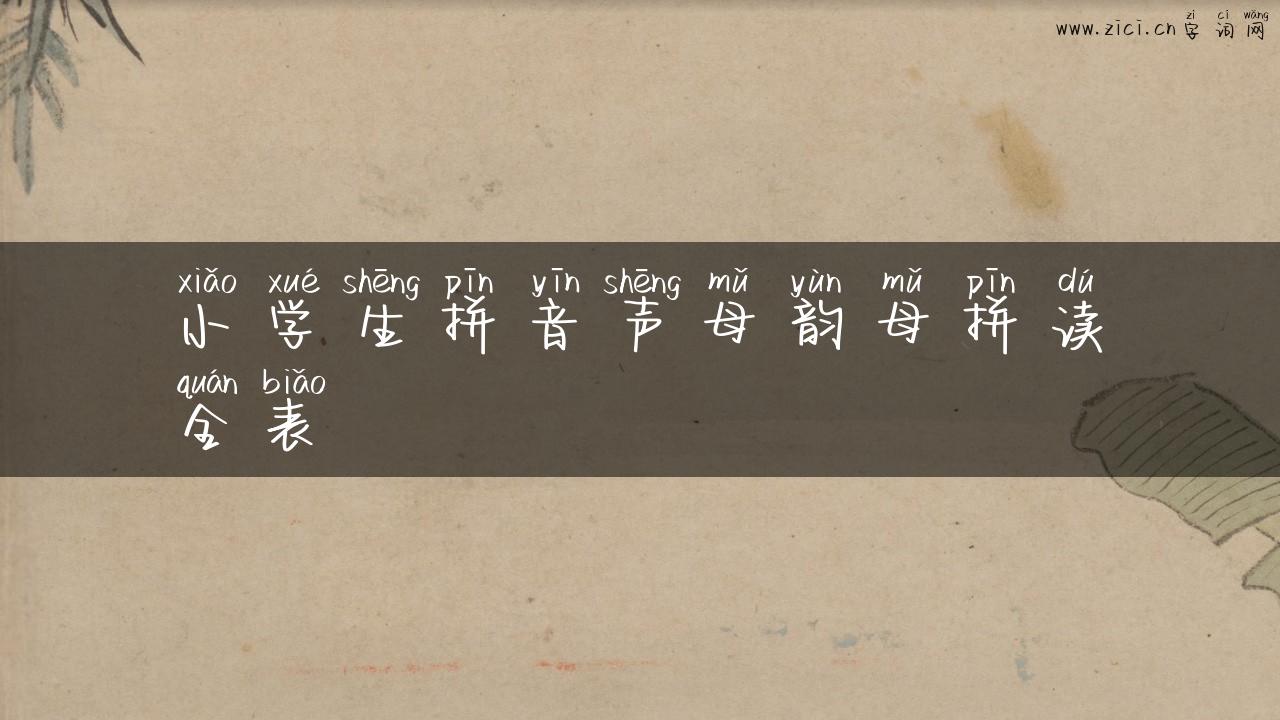 zì cí wǎng
www.zici.cn 字词网
xiǎo xué shēng pīn yīn shēng mǔ yùn mǔ pīn dú
小学生拼音声母韵母拼读
quán biǎo
全表